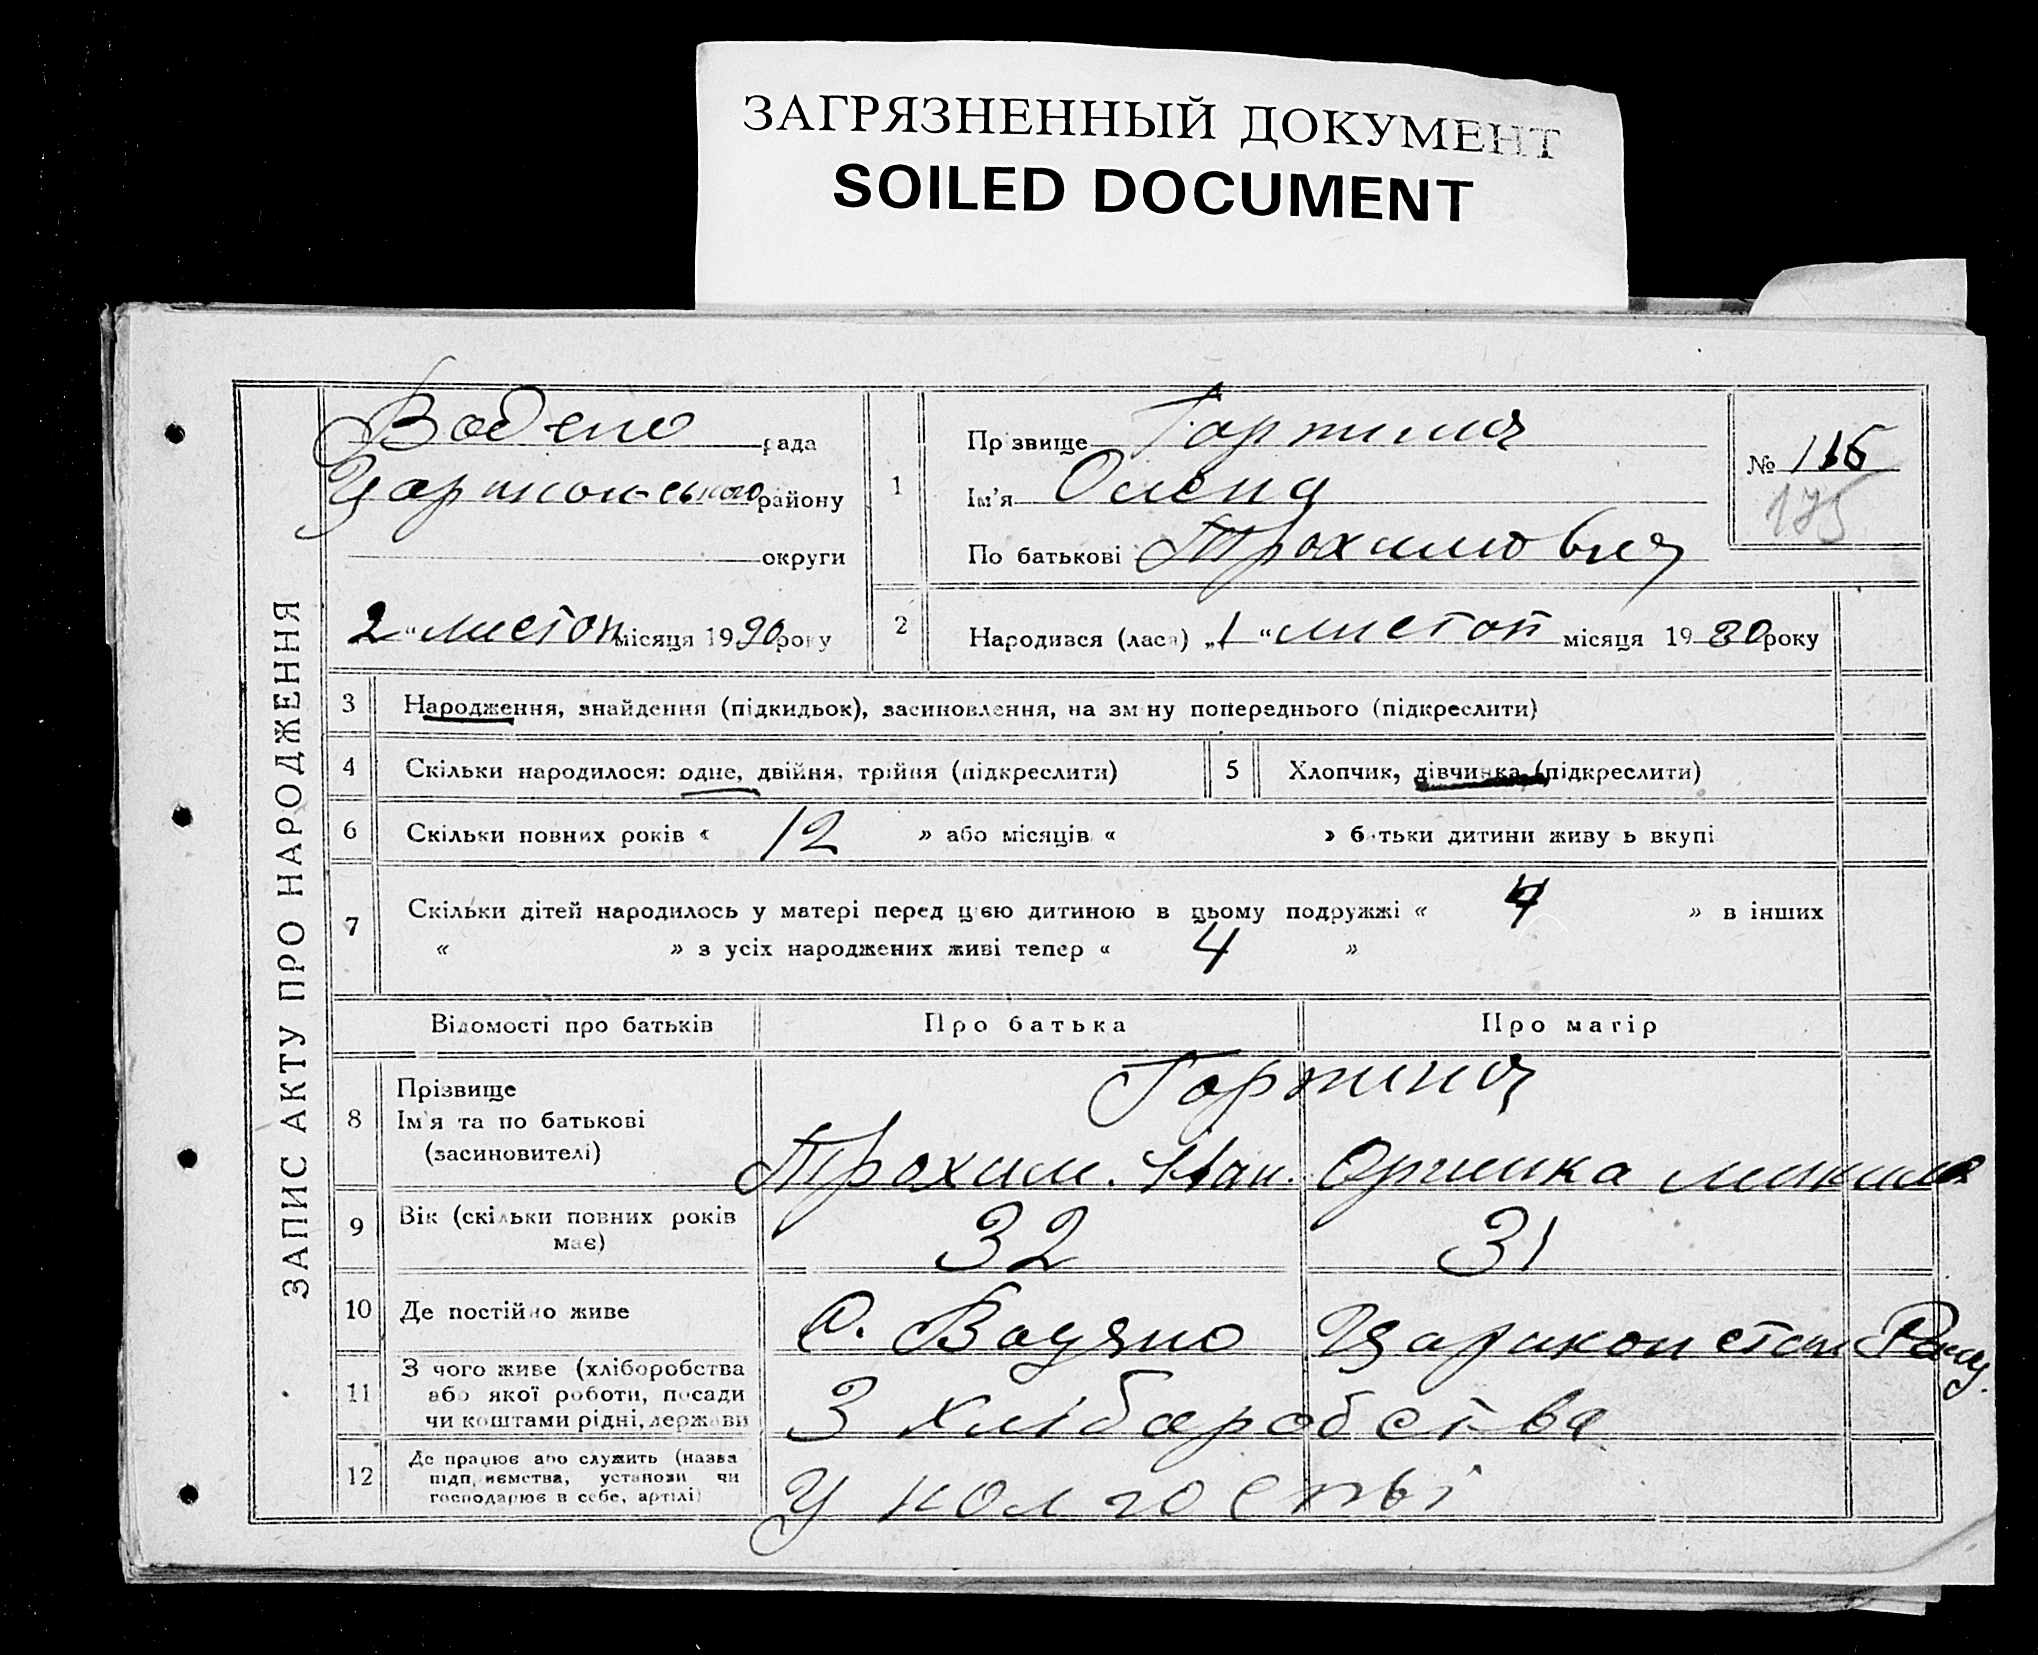 ЗАГРЯЗНЕННЫЙ ДОКУМЕНТ
SOILED DOCUMENT
ЗАПИС АКТУ ПРО НАРОДЖЕННЯ
рада
Царичон-ського району
округи
2 " листоп місяця 1930 року
1
Прізвище
Ім'я Олена
По батькові Трохимовна
№ 116
175
2
Народився (лася) „1 “ листоп місяця 1930 року
3 Народження, знайдення (підкидьок), засиновлення, на зміну попереднього (підкреслити)
4 Скільки народилося: одне, двійня, трійня (підкреслити) 5 Хлопчик, дівчинка (підкреслити)
6 Скільки повних років « 12 » або місяців « » батьки дитини живуть вкупі
7 Скільки дітей народилось у матері перед цією дитиною в цьому подружжі « 4 » в інших
« » з усіх народжених живі тепер « 4 »
Відомості про батьків Про батька Про матір
8 Прізвище
Ім'я та по батькові
(засиновителі)
Трохим. Иван.
9 Вік (скільки повних років має) 32 31
10 Де постійно живе С. Водяно
11 З чого живе (хліборобства
або якої роботи, посади
чи коштами рідні, держави
З хліборобства
12 Де працює або служить (назва
підприємства, установи чи
господарює в себе, артілі)
У колгоспі